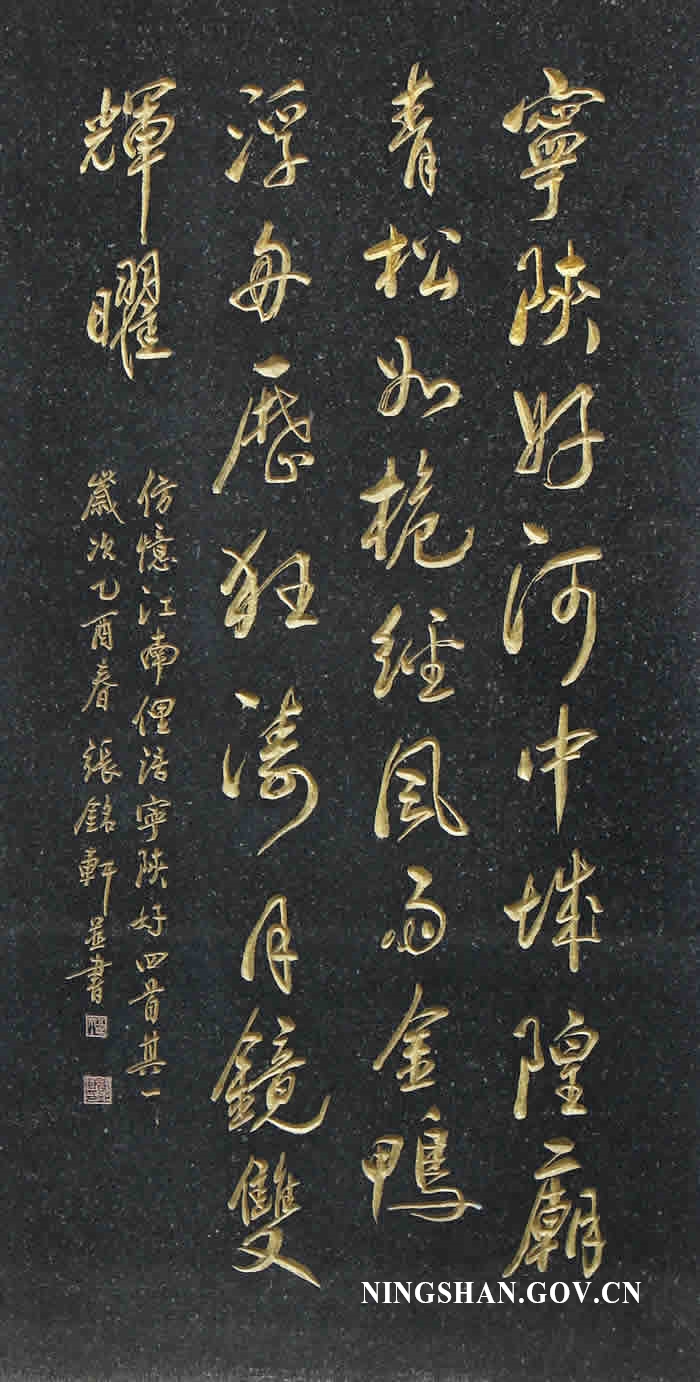 寧陝好河中城隍廟
青松如桅經風雨金鴨
浮舟歷狂濤月鏡雙
輝曜
仿憶江南俚語寧陝好四首其一
歲次乙酉春張銘軒並書
NINGSHAN.GOV.CN